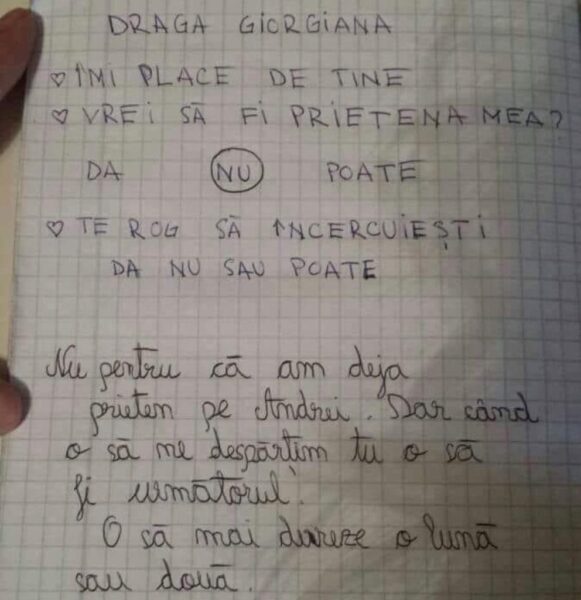 DRAGA GIORGIANA
♡ ÎMI PLACE DE TINE
♡ VREI SĂ FI PRIETENA MEA?
DA NU POATE
♡ TE ROG SĂ ÎNCERCUIEȘTI
DA NU SAU POATE
Nu pentru că am deja
prieten pe Andrei. Dar când
o să ne despărțim tu o să
fi următorul.
O să mai dureze o lună
sau două.